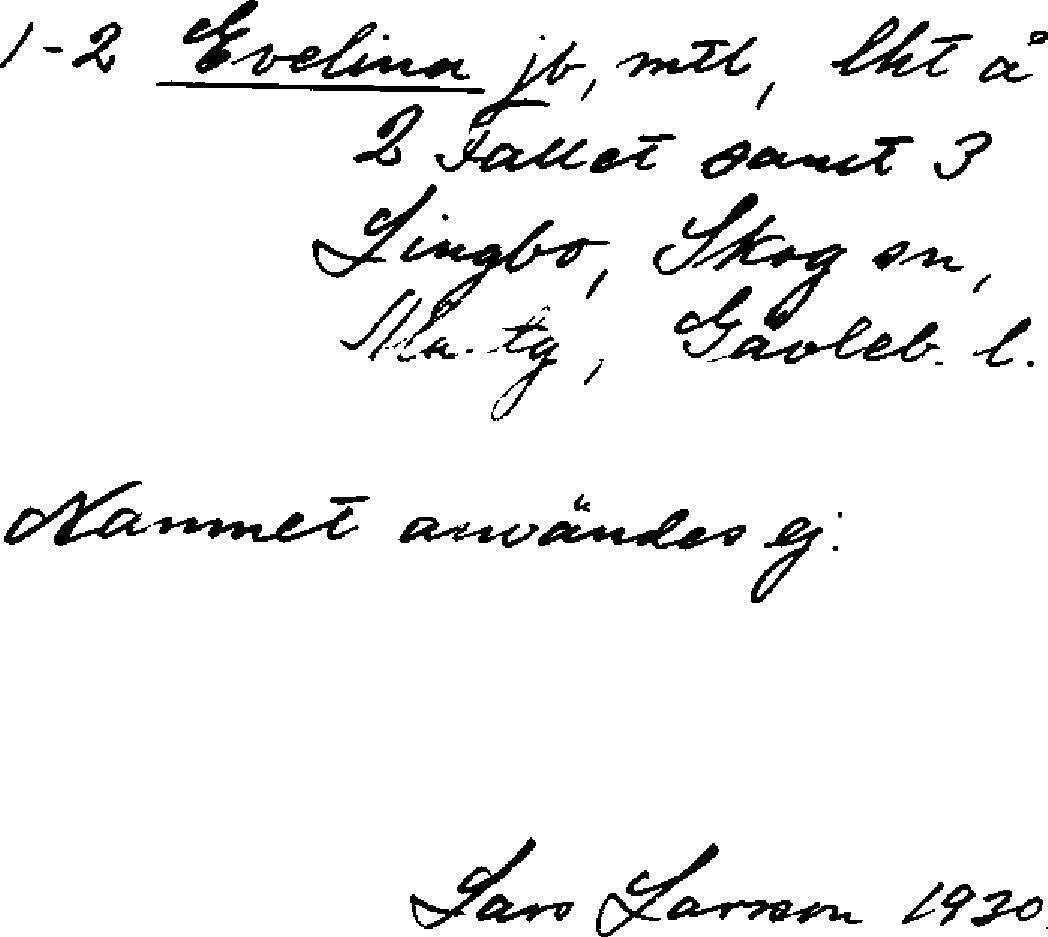 1-2 Evelina jb, mtl, lht å
2 Fallet samt 3
Lingbo, Skog sn,
Ala. tg, Gävleb. l.
Namnet användes ej.
Lars Larsson 1930.